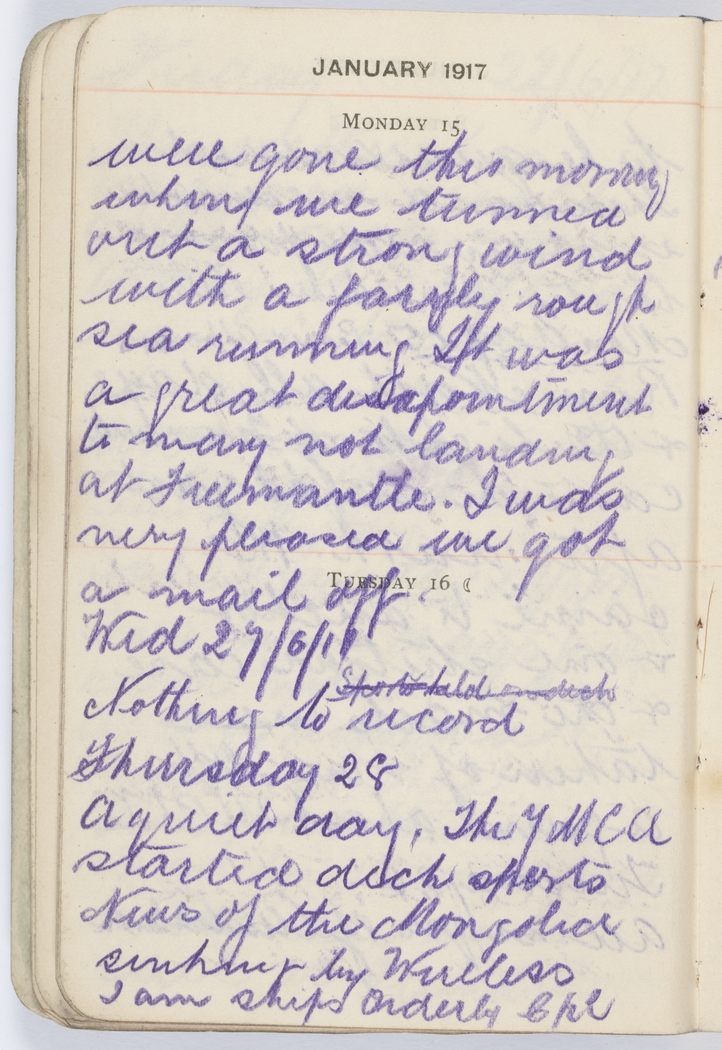 JANUARY 1917
MONDAY 15
were gone this morning
when we turned
out a strong wind
with a fairly rough
sea running It was
a great disapointment
to many not landing
at Freemantle. I was
very pleased we got
TUESDAY 16
a mail off.
Wed 27/6/17
Sports held on deck
Nothing to record
Thursday 28
A quiet day. The YMCA
started deck sports
News of the Mongolia
sinking by Wireless
I am ships Orderly Cpl